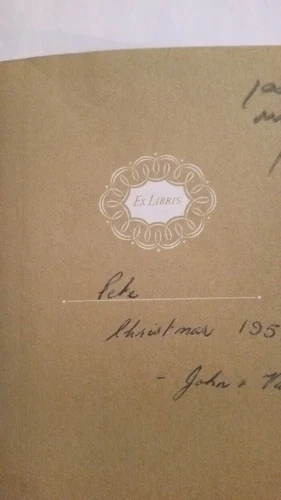 Ex Libris
Pete
Christmas 195
- John &